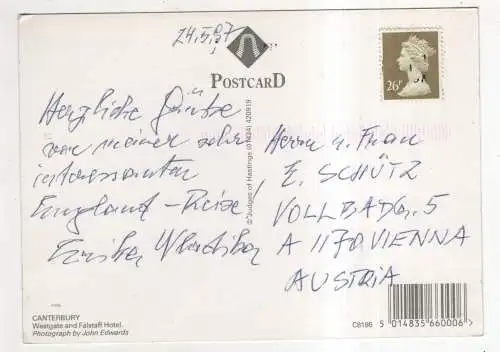 24.5.97
POSTCARD
26P
Herzliche Grüße
von meiner sehr
interessanten
England-Reise!
Erika
Herrn u. Frau
E. SCHÜTZ
VOLLBADG. 5
A 1170 VIENNA
AUSTRIA
© Judges of Hastings (01424) 420919
CANTERBURY
Westgate and Falstaff Hotel.
Photograph by John Edwards
C8186
5 014835 660006